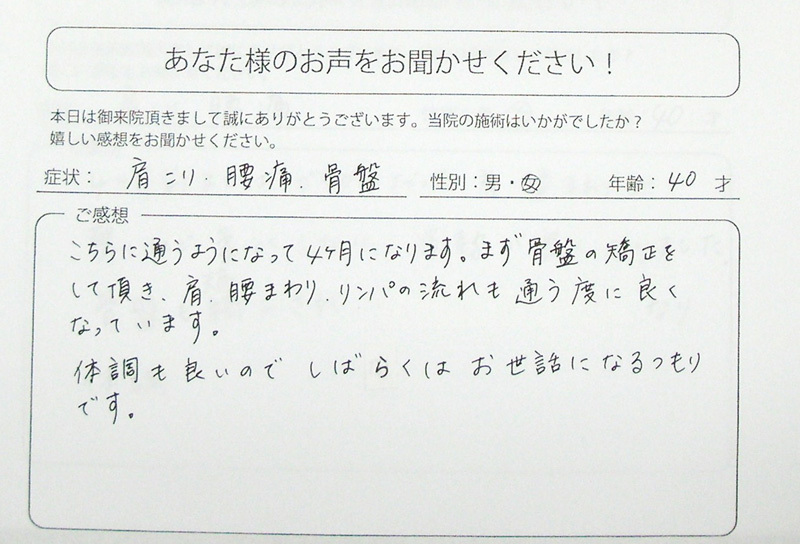 あなた様のお声をお聞かせください！
本日は御来院頂きまして誠にありがとうございます。当院の施術はいかがでしたか？
嬉しい感想をお聞かせください。
症状： 肩こり．腰痛．骨盤 性別：男・女 年齢：40 才
ご感想
こちらに通うようになって4ヶ月になります。まず骨盤の矯正を
して頂き、肩、腰まわり、リンパの流れも通う度に良く
なっています。
体調も良いので しばらくは お世話になるつもり
です。